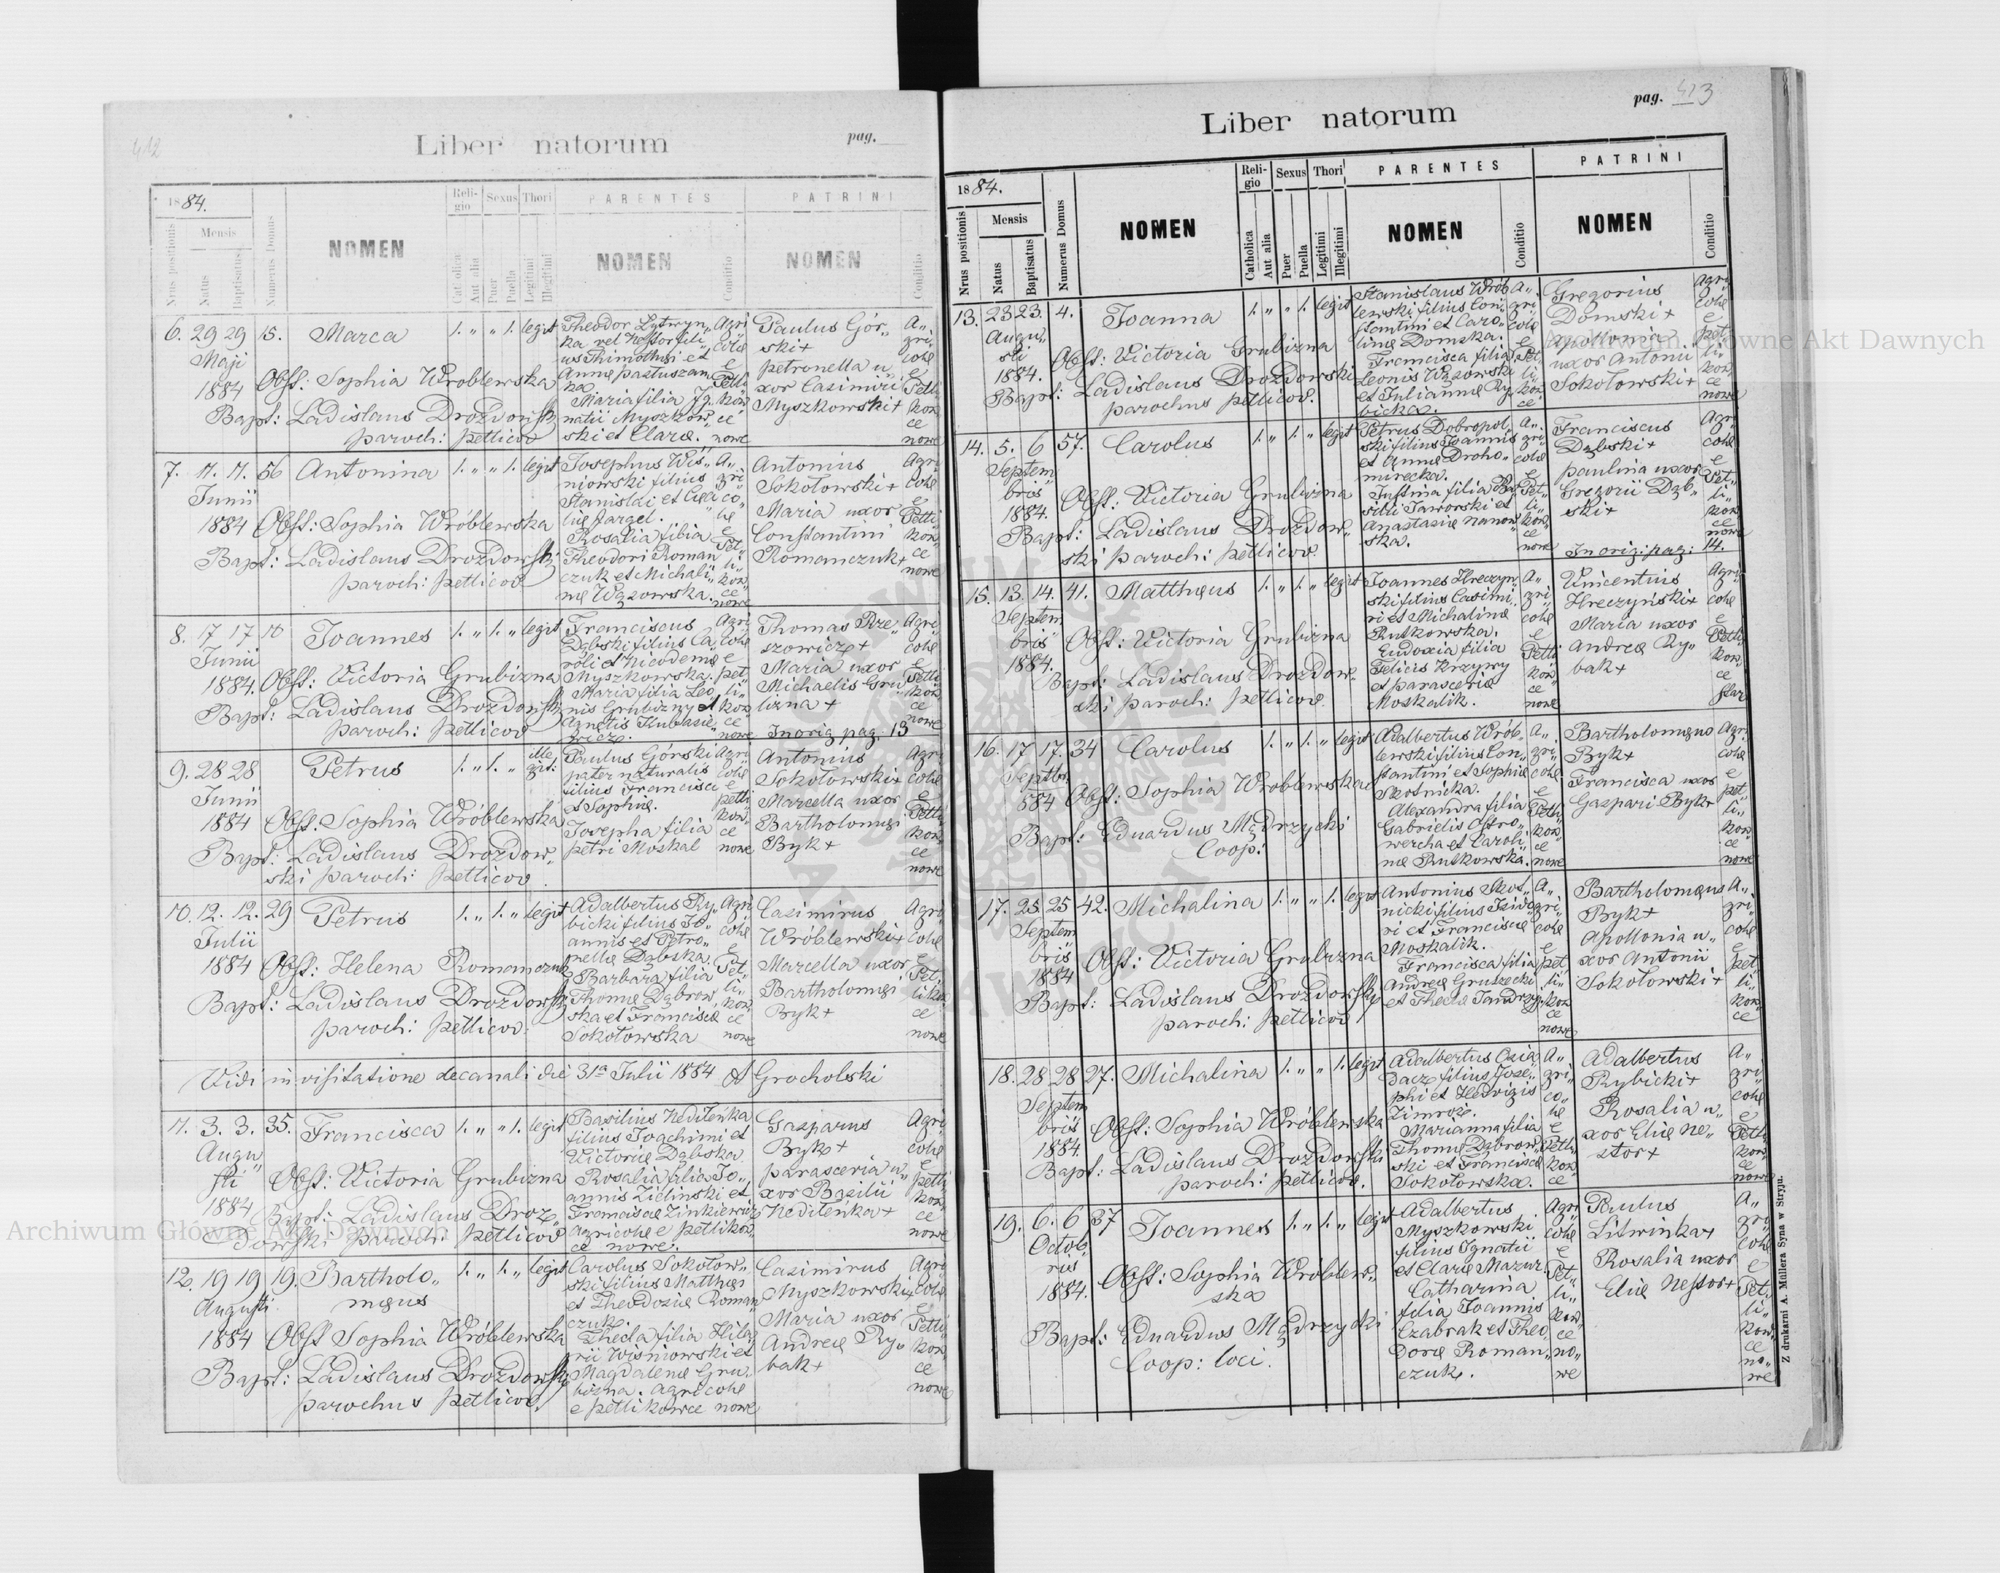 412
Liber natorum
pag.
1884.
Nrus positionis
Mensis
Natus
Baptisatus
Numerus Domus
NOMEN
Religio
Catholica
Aut alia
Sexus
Puer
Puella
Thori
Legitimi
Illegitimi
PARENTES
NOMEN
Conditio
PATRINI
NOMEN
Conditio
6. 29 29 15. Marca 1. " " 1. legit
Maji
1884 Obst: Sophia Wróblewska
Bapt: Ladislaus Drozdowski
paroch: Petlicov
Theodor Lytwyn„
ka vel Nestor fili„
us Thimothei et
Annæ Pastuszen
ka.
Maria filia Ig„
natii Myszkow„
ski et Claræ.
Agri
colæ
e
Petli
kow
ce
nowe
Paulus Gór„
ski +
Petronella u„
xor Casimiri
Myszkowski +
A„
gri„
colæ
e
Petli
kow
ce
nowe
7. 11. 11. 56 Antonina 1. " " 1. legit
Junii
1884 Obst: Sophia Wróblewska
Bapt: Ladislaus Drozdowski
paroch: Petlicov
Josephus Wiś„
niowski filius
Stanislai et Cæci„
liæ Jargel.
Rosalia filia
Theodori Roman
czuk et Michali„
næ Wąsowska.
A„
gri
co„
læ
e
Pet„
li„
kow„
ce
nowe
Antonius
Sokołowski +
Maria uxor
Constantini
Romanczuk +
Agri
colæ
e
Petli
kow„
ce
nowe
8. 17 17 10 Joannes 1. " 1. " legit
Junii
1884. Obst: Victoria Grubizna
Bapt: Ladislaus Drozdowski
paroch: Petlicov
Franciscus
Dąbski filius Ca„
roli et Nicodemæ
Myszkowska.
Maria filia Leo„
nis Grubizny et
Agnetis
Agri
colæ
e
Pet„
li„
kow
ce
nowe
Thomas Rze„
szowicz +
Maria uxor
Michaelis Gru„
bizna +
In orig. pag. 13
Agri
colæ
e
Petli
kow
ce
nowe
9. 28 28 Petrus 1. " 1. " ille
git:
Junii
1884 Obst: Sophia Wróblewska
Bapt: Ladislaus Drozdow„
ski paroch: Petlicov.
Paulus Górski
pater naturalis
filius Francisci
et Sophiæ.
Josepha filia
Petri Moskal
Agri
colæ
e
Petli
kow„
ce
nowe
Antonius
Sokołowski +
Marcella uxor
Bartholomæi
Byk +
Agri
colæ
e
Petli
kow„
ce
nowe
10. 12. 12. 29 Petrus 1. " 1. " legit
Julii
1884 Obst: Helena Romanczuk
Bapt: Ladislaus Drozdowski
paroch: Petlicov:
Adalbertus Ry„
bicki filius Jo„
annis et Petro„
nellæ Dąbska.
Barbara filia
Thomæ Dąbrow„
ska et Franciscæ
Sokołowska
Agri
colæ
e
Pet„
li„
kow
ce
nowe
Casimirus
Wróblewski +
Marcella uxor
Bartholomæi
Byk +
Agri„
colæ
e
Pet„
likow
ce
nowe
Vidi in visitatione decanali die 31a Julii 1884 A Grocholski
11. 3. 3. 35. Francisca 1. " " 1. legit
Augu„
sti
1884 Obst: Victoria Grubizna
Bapt: Ladislaus Droz„
dowski paroch: Petlicov
Basilius Nediłeńka
filius Joachimi et
Victoriæ Dąbska
Rosalia filia Jo„
annis Zieliński et
Franciscæ Zinkiewicz
Agricolæ e Petlikow„
ce nowe.
Gasparus
Byk +
Parasceria u„
xor Basilii
Nediłeńka +
Agri„
colæ
e
Petli
kow
ce
nowe
12. 19 19 19. Bartholo„
mæus 1. " 1. " legit
Augusti
1884 Obst Sophia Wróblewska
Bapt: Ladislaus Drozdowski
parochus Petlicov.
Carolus Sokołow„
ski filius Matthæi
et Theodosiæ Roman
czuk.
Thecla filia Hila„
rii Wiśniowski et
Magdalenæ Gru„
bizna. Agricolæ
e Petlikowce nowe
Casimirus
Myszkowski +
Maria uxor
Andreæ Ry„
bak +
Agri
colæ
e
Petli
kow„
ce
nowe
pag. 413
Liber natorum
1884.
Nrus positionis
Mensis
Natus
Baptisatus
Numerus Domus
NOMEN
Religio
Catholica
Aut alia
Sexus
Puer
Puella
Thori
Legitimi
Illegitimi
PARENTES
NOMEN
Conditio
PATRINI
NOMEN
Conditio
13. 23 23. 4. Joanna 1. " " 1. legit
Augu„
sti
1884. Obst: Victoria Grubizna
Bapt: Ladislaus Drozdowski
parochus Petlicov.
Stanislaus Wrób
lewski filius Con„
stantini et Caro„
linæ Domska.
Francisca filia
Leonis Wąsowski
et Juliannæ Ry„
bicka.
A„
gri„
colæ
e
Pet„
li„
kow„
ce
Gregorius
Domski +
Apollonia
uxor Antonii
Sokołowski +
Agri
colæ
e
Pet„
li„
kow
ce
nowe
14. 5. 6 57. Carolus 1. " 1. " legit
Septem
bris
1884. Obst: Victoria Grubizna
Bapt: Ladislaus Drozdow„
ski paroch: Petlicov.
Petrus Dobropol„
ski filius Joannis
et Annæ Droho„
mirecka.
Justina filia Ba„
silii Jaworski et
Anastasiæ Nanow„
ska.
A„
gri„
colæ
e
Pet„
li„
kow„
ce
nowe
Franciscus
Dąbski +
Paulina uxor
Gregorii Dąb„
ski +
In orig: pag: 14.
Agri
colæ
e
Pet„
li„
kow
ce
nowe
15. 13. 14. 41. Matthæus 1. " 1. " legit
Septem
bris
1884. Obst: Victoria Grubizna
Bapt: Ladislaus Drozdow„
ski paroch: Petlicov.
Joannes Hreczyn„
ski filius Casimi„
ri et Michalinæ
Rutkowska.
Eudoxia filia
Felicis Krzywy
et Parasceriæ
Moskalik.
A„
gri„
colæ
e
Petli
kow„
ce
nowe
Vincentius
Hreczyński +
Maria uxor
Andreæ Ry„
bak +
Agri„
colæ
e
Petli
kow
ce
star
16. 17 17. 34 Carolus 1. " 1. " legit
Septbr.
884 Obst: Sophia Wróblewska
Bapt: Eduardus Mądrzycki
Coop:
Adalbertus Wrób„
lewski filius Con„
stantini et Sophiæ
Skotnicka.
Alexandra filia
Gabrielis Ostro„
wercha et Caroli„
næ Rutkowska.
A„
gri„
colæ
e
Petli
kow„
ce
nowe
Bartholomæus
Byk +
Francisca uxor
Gaspari Byk +
Agri„
colæ
e
Pet„
li„
kow„
ce
nowe
17. 25 25 42. Michalina 1. " " 1. legit
Septem
bris
1884 Obst: Victoria Grubizna
Bapt: Ladislaus Drozdowski
paroch: Petlicov
Antonius Skot„
nicki filius Isido„
ri et Franciscæ
Moskalik.
Francisca filia
Andreæ Gruszecki
et Theclæ
A„
gri„
colæ
e
Pet„
li„
kow
ce
nowe
Bartholomæus
Byk +
Apollonia u„
xor Antonii
Sokołowski +
A„
gri„
colæ
e
Pet„
li„
kow„
ce
18. 28 28 27. Michalina 1. " " 1. legit
Septem
bris
1884. Obst: Sophia Wróblewska
Bapt: Ladislaus Drozdowski
paroch: Petlicov.
Adalbertus Osia„
dacz filius Jose„
phi et Hedvigis
Zimroz.
Marianna filia
Thomæ Dąbrow„
ski et Franciscæ
Sokołowska.
A„
gri„
co„
læ
e
Petli
kow
ce
Adalbertus
Rybicki +
Rosalia u„
xor Eliæ Ne„
stor +
A„
gri„
colæ
e
Petli
kow
ce
nowe
19. 6. 6 37 Joannes 1. " 1. " legit
Octob„
ris
1884. Obst: Sophia Wróblew„
ska
Bapt: Eduardus Mądrzycki
Coop: loci.
Adalbertus
Myszkowski
filius Ignatii
et Claræ Mazur.
Catharina
filia Joannis
Czabrak et Theo„
doræ Roman„
czuk.
Agri
colæ
e
Pet„
li„
kow„
ce
no„
we
Paulus
Litwinka +
Rosalia uxor
Eliæ Nestor +
A„
gri„
colæ
e
Pet„
li„
kow„
ce
no„
we
Z drukarni A. Müllera Syna w Stryju.
Archiwum Główne Akt Dawnych
Archiwum Główne Akt Dawnych